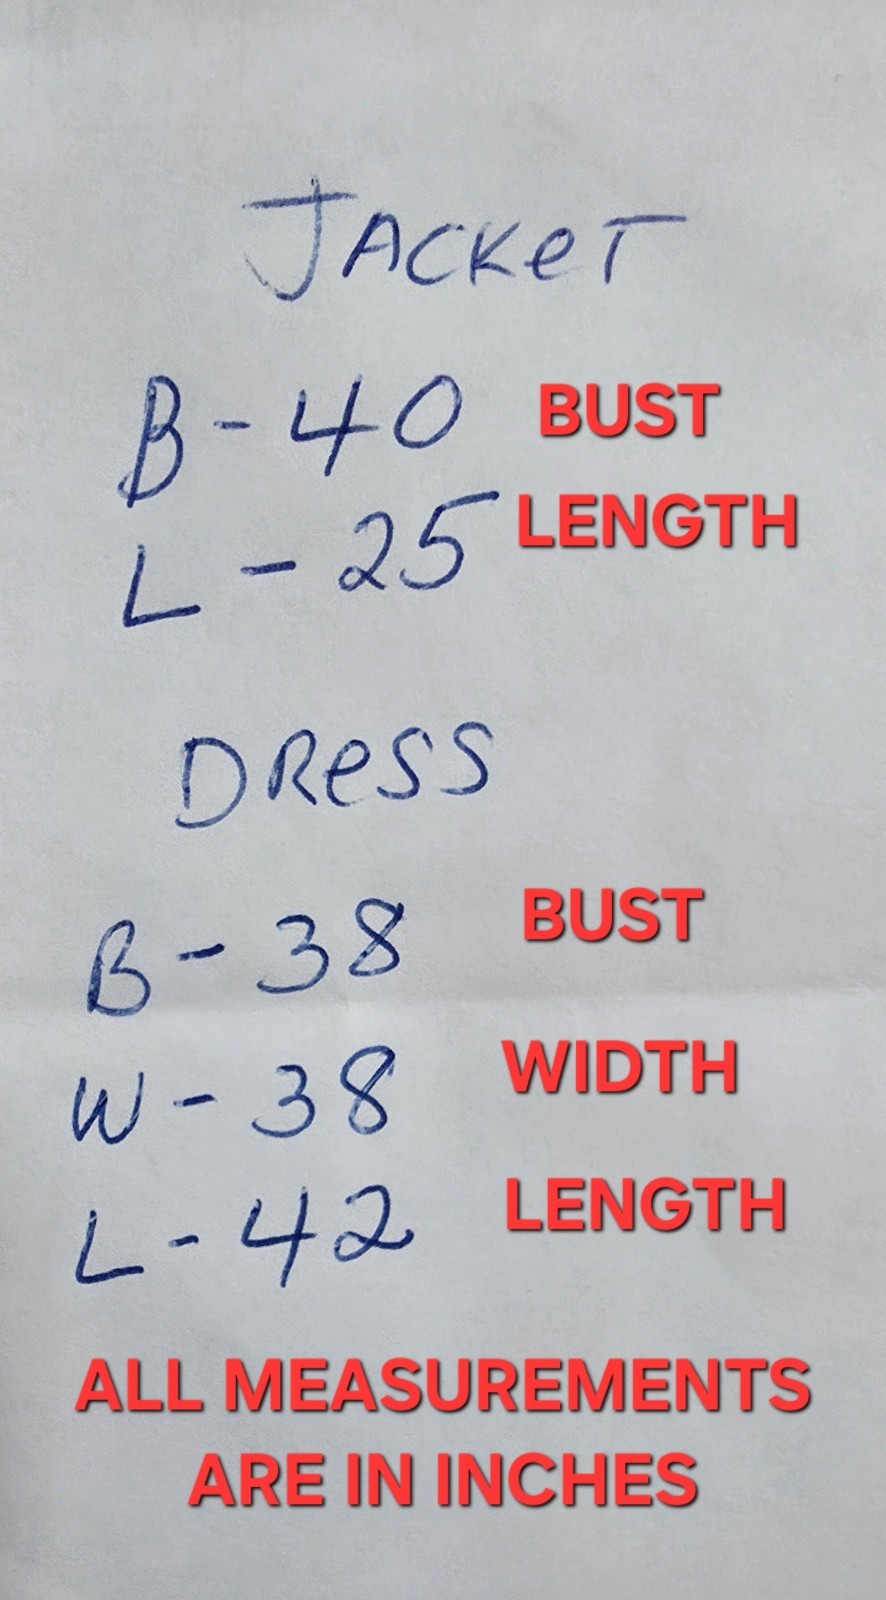 JACKET
B - 40 BUST
L - 25 LENGTH
DRESS
B - 38 BUST
W - 38 WIDTH
L - 42 LENGTH
ALL MEASUREMENTS
ARE IN INCHES